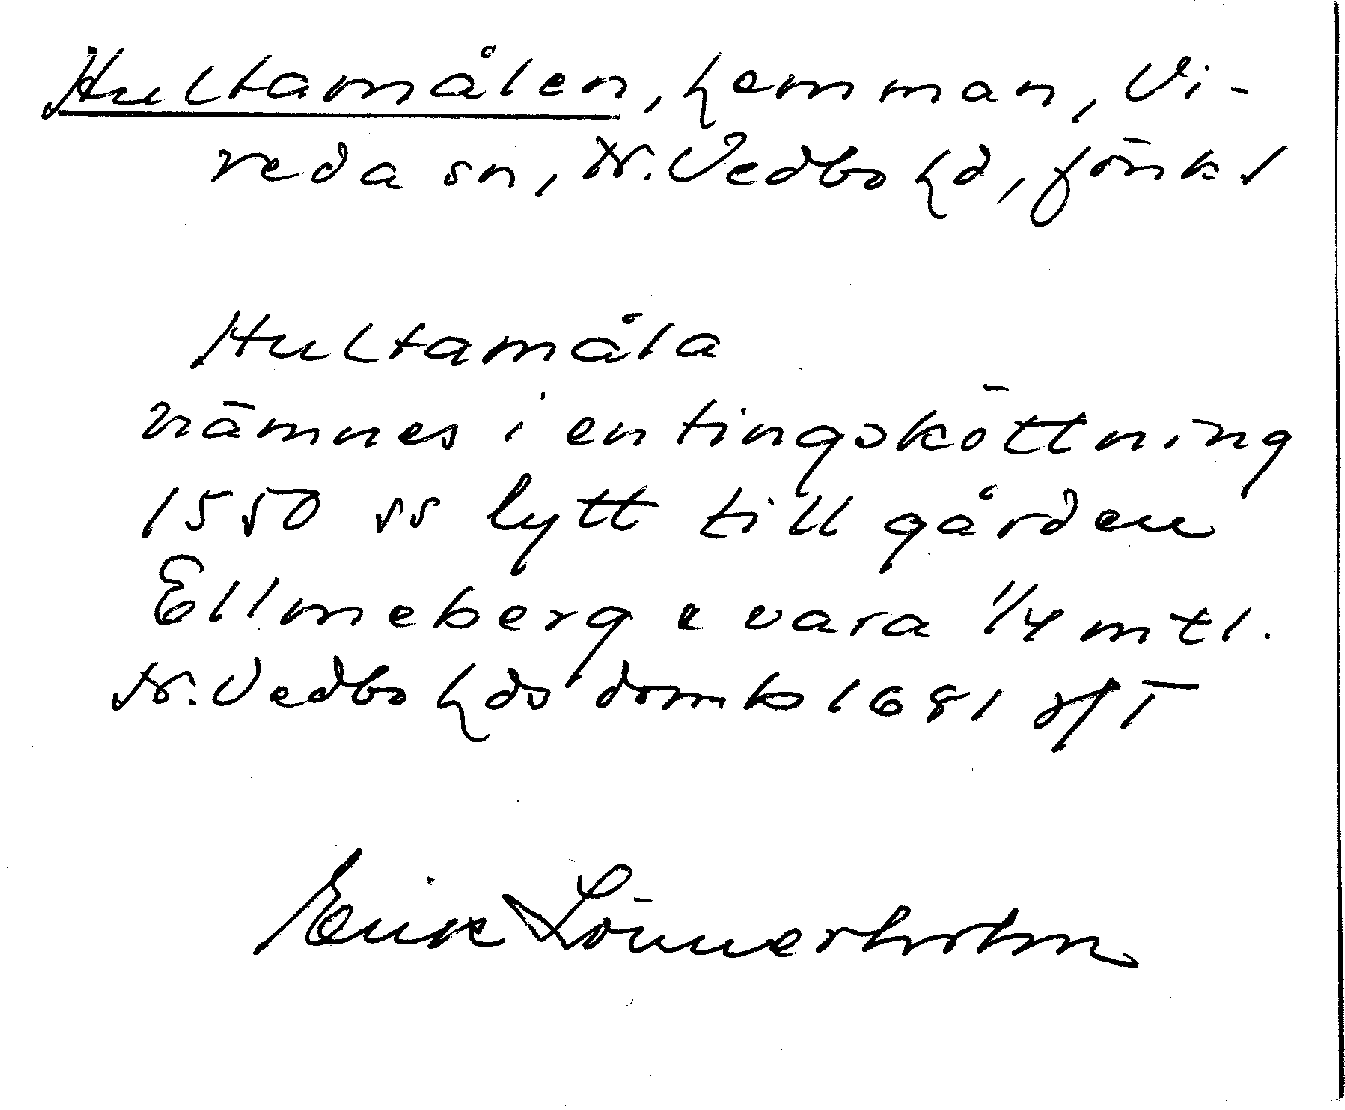 Hultamålen, hemman, Vi-
reda sn, N. Vedbo hd, Jönk l
Hultamåla
nämnes i en tingsköttning
1550 ss lytt till gården
Ellmeberg e vara 1/4 mtl.
N. Vedbo hds domb 1681 3/1
Erik Lönnerholm